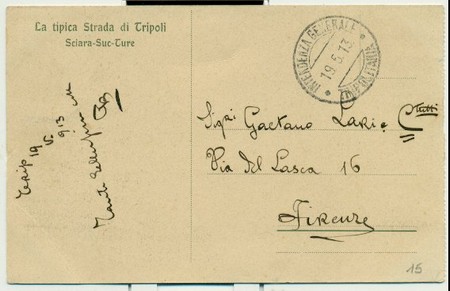 La tipica Strada di Tripoli
Sciara-Suc-Ture
INTENDENZA GENERALE
19.5.13
TRIPOLITANIA
Trip 19 V. 913
Tanti
Sigri Gaetano Lari e C tutti
Via del Lasca 16
Firenze
15